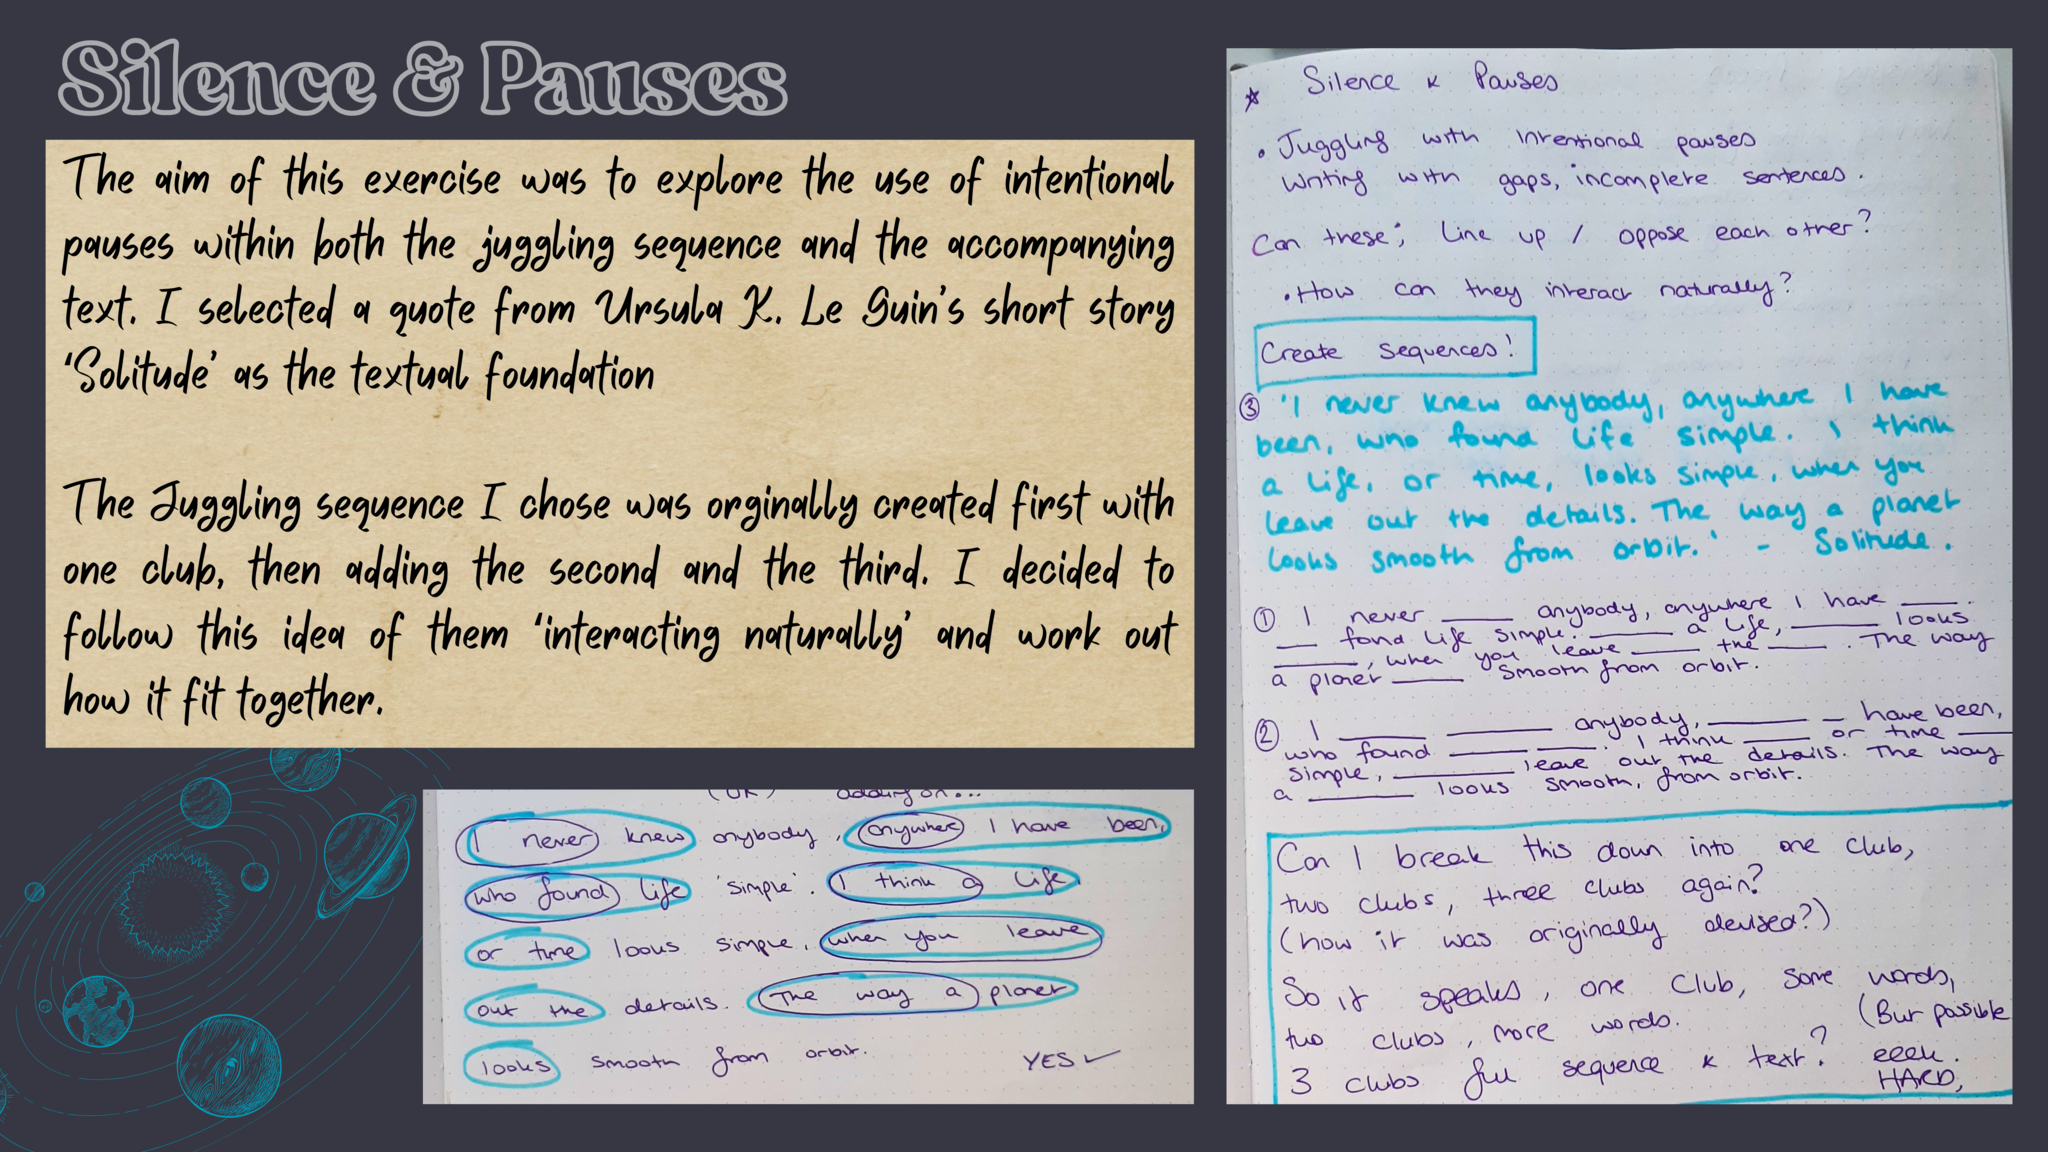 Silence & Pauses
The aim of this exercise was to explore the use of intentional
pauses within both the juggling sequence and the accompanying
text. I selected a quote from Ursula K. Le Guin's short story
'Solitude' as the textual foundation
The Juggling sequence I chose was orginally created first with
one club, then adding the second and the third. I decided to
follow this idea of them 'interacting naturally' and work out
how it fit together.
(UK) adding on...
I never knew anybody, anywhere I have been,
who found life 'simple'. I think a life,
or time looks simple, when you leave
out the details. The way a planet
looks smooth from orbit. YES ✓
☆ Silence & Pauses
• Juggling with intentional pauses
Writing with gaps, incomplete sentences.
Can these; Line up / oppose each other?
• How can they interact naturally?
Create sequences!
③ 'I never knew anybody, anywhere I have
been, who found life simple. I think
a life, or time, looks simple, when you
leave out the details. The way a planet
looks smooth from orbit.' - Solitude.
① I never ____ anybody, anywhere I have ____.
____ found life simple. ____ a life, ____ looks
____, when you leave ____ the ____. The way
a planet ____ smooth from orbit.
② I ____ ____ anybody, ____ _ have been,
who found ____ ____. I think ____ or time ____
simple, ____ leave out the details. The way
a ____ looks smooth, from orbit.
Can I break this down into one club,
two clubs, three clubs again?
(how it was originally devised?)
So it speaks, one club, some words,
two clubs, more words. (But possible
3 clubs full sequence & text? eeek.
HARD,